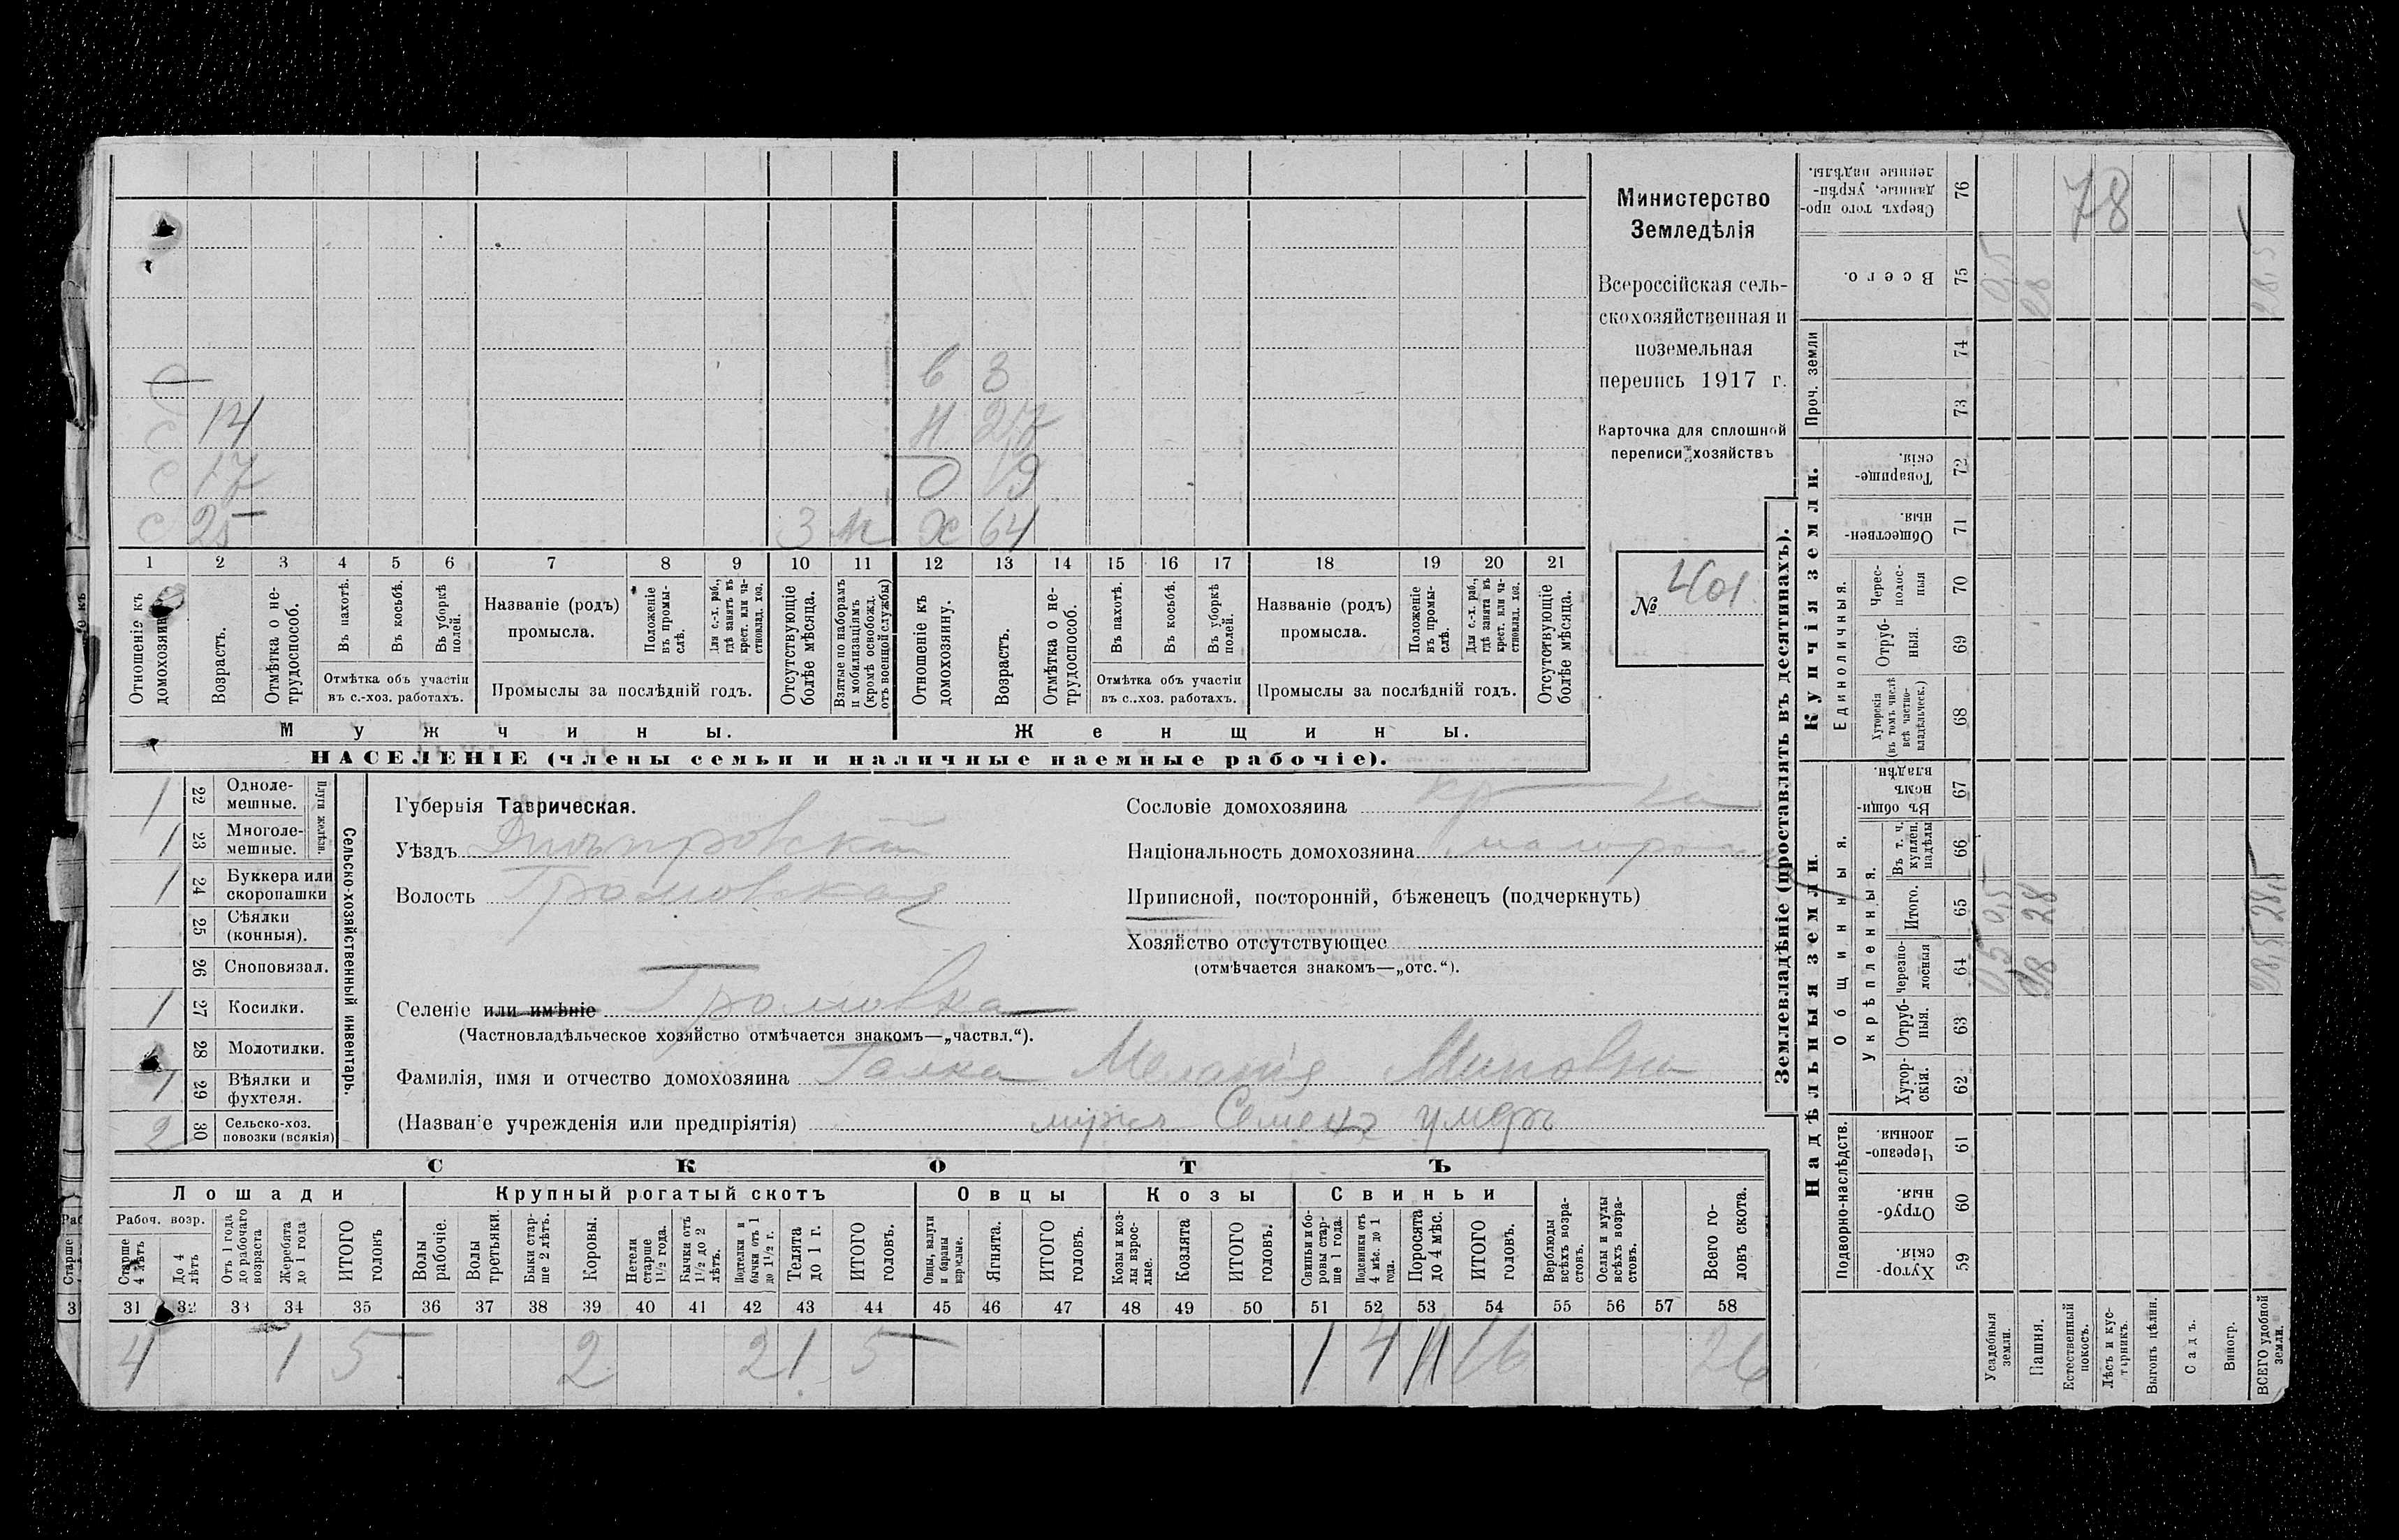 Министерство
Земледѣлія
Всероссійская сель-
скохозяйственная и
поземельная
перепись 1917 г.
Карточка для сплошной
переписи хозяйствъ
№ 401
в 3
14 Н 27
с 17 О 19
с 25 3 м Х 64
1 2 3 4 5 6 7 8 9 10 11 12 13 14 15 16 17 18 19 20 21
Отношеніе къ домохозяину.
Возрастъ.
Отмѣтка о не-трудоспособ.
Въ пахотѣ.
Въ косьбѣ.
Въ уборкѣ полей.
Отмѣтка объ участіи
въ с.-хоз. работахъ.
Названіе (родъ)
промысла.
Положеніе въ промы-слѣ.
Для с.-х. раб., гдѣ занятъ въ крест. или ча-стновлад. хоз.
Промыслы за послѣдній годъ.
Отсутствующіе болѣе мѣсяца.
Взятые по наборамъ и мобилизаціямъ (кромѣ освобожд. отъ военной службы)
Отношеніе къ домохозяину.
Возрастъ.
Отмѣтка о не-трудоспособ.
Въ пахотѣ.
Въ косьбѣ.
Въ уборкѣ полей.
Отмѣтка объ участіи
въ с..хоз. работахъ.
Названіе (родъ)
промысла.
Положеніе въ промы-слѣ.
Для с.-х. раб., гдѣ занята въ крест. или ча-стновлад. хоз.
Промыслы за послѣдній годъ.
Отсутствующіе болѣе мѣсяца.
Мужчины. Женщины.
НАСЕЛЕНІЕ (члены семьи и наличные наемные рабочіе).
Сельско-хозяйственный инвентарь.
Плуги желѣзн.
1 22 Одноле-мешные.
1 23 Многоле-мешные.
1 24 Буккера или скоропашки
25 Сѣялки (конныя).
26 Сноповязал.
1 27 Косилки.
28 Молотилки.
1 29 Вѣялки и фухтеля.
2 30 Сельско-хоз. повозки (всякія)
Губернія Таврическая.
Уѣздъ Днѣпровскій
Волость Громовская
Селеніе или имѣніе Громовка
(Частновладѣльческое хозяйство отмѣчается знакомъ—„частвл.“).
Фамилія, имя и отчество домохозяина Галка Меланія Миновна
(Названіе учрежденія или предпріятія) мужъ Семенъ умеръ
Сословіе домохозяина кр-ка
Національность домохозяина малоросс
Приписной, посторонній, бѣженецъ (подчеркнуть)
Хозяйство отсутствующее
(отмѣчается знакомъ—„отс.“).
СКОТЪ
Лошади Крупный рогатый скотъ Овцы Козы Свиньи
Рабоч. возр.
Старше 4 лѣтъ
До 4 лѣтъ
Отъ 1 года до рабочаго возраста
Жеребята до 1 года
ИТОГО головъ
Волы рабочіе.
Волы третьяки.
Быки стар-ше 2 лѣтъ.
Коровы.
Нетели старше 1½ года.
Бычки отъ 1½ до 2 лѣтъ.
Подтелки и бычки отъ 1 до 1½ г.
Телята до 1 г.
ИТОГО головъ.
Овцы, валухи и бараны взрослые.
Ягнята.
ИТОГО головъ.
Козы и коз-лы взрос-лые.
Козлята
ИТОГО головъ.
Свиньи и бо-ровы стар-ше 1 года.
Подсвинки отъ 4 мѣс. до 1 года.
Поросята до 4 мѣс.
ИТОГО головъ.
Верблюды всѣхъ возра-стовъ.
Ослы и мулы всѣхъ возра-стовъ.
Всего го-ловъ скота.
31 32 33 34 35 36 37 38 39 40 41 42 43 44 45 46 47 48 49 50 51 52 53 54 55 56 57 58
4 1 5 2 2 1 5 1 4 11 16 26
Землевладѣніе (проставлять въ десятинахъ).
Купчія земли.
Надѣльныя земли.
Проч. земли
Единоличныя.
Общинныя.
Укрѣпленныя.
Подворно-наслѣдств.
Сверхъ того про-данные, укрѣп-ленные надѣлы. 76
78
Всего. 75 0,5 28 28,5
74
73
Товарище-скія. 72
Обществен-ныя. 71
Черес-полос-ныя 70
Отруб-ныя. 69
Хуторскія (въ томъ числѣ всѣ частно-владѣльческ.) 68
Въ общин-номъ владѣн. 67
Въ т. ч. куплен. надѣлы 66
Итого. 65 0,5 28 28,5
черезпо-лосныя 64 0,5 28 28,5
Отруб-ныя. 63
Хутор-скія. 62
Черезпо-лосныя. 61
Отруб-ныя. 60
Хутор-скія. 59
Усадебныя земли.
Пашня.
Естественный покосъ.
Лѣсъ и кус-тарникъ.
Выгонъ цѣлин.
Садъ.
Виногр.
ВСЕГО удобной земли.